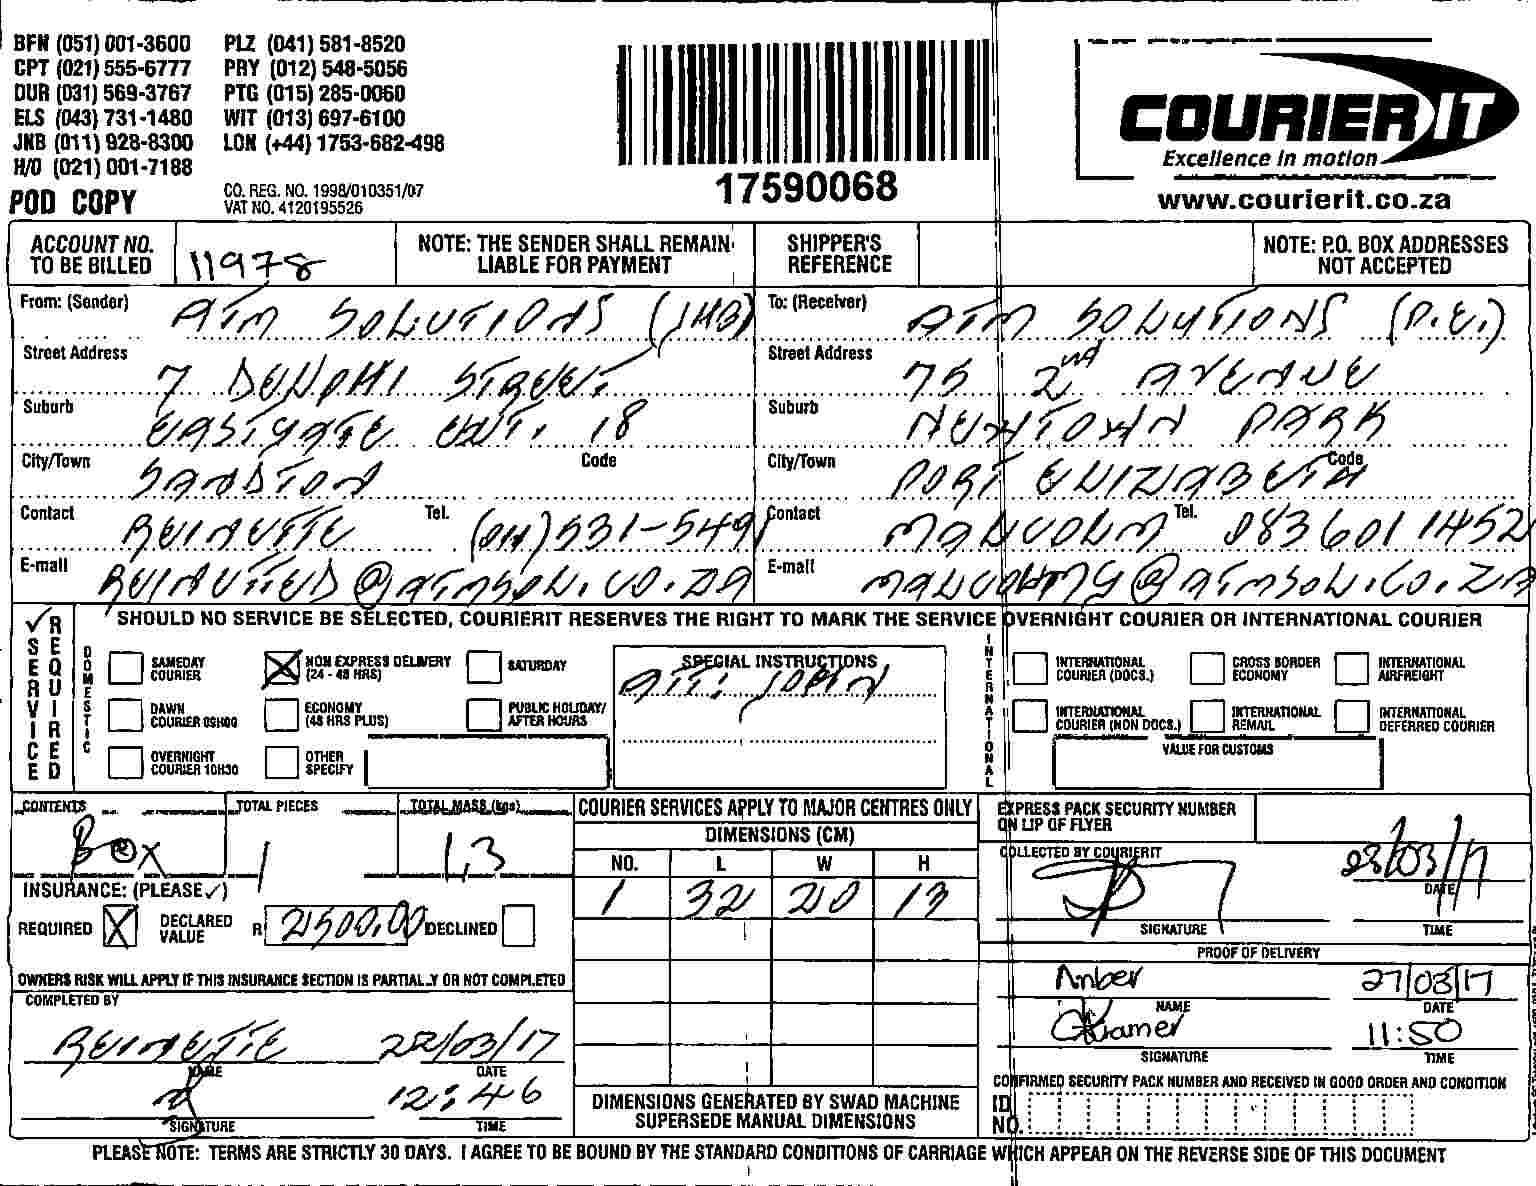 BFN (051) 001-3600 PLZ (041) 581-8520
CPT (021) 555-6777 PRY (012) 548-5056
DUR (031) 569-3767 PTG (015) 285-0060
ELS (043) 731-1480 WIT (013) 697-6100
JNB (011) 928-8300 LON (+44) 1753-682-498
H/O (021) 001-7188
POD COPY
CO. REG. NO. 1998/010351/07
VAT NO. 4120195526
17590068
COURIER IT
Excellence in motion
www.courierit.co.za
ACCOUNT NO. TO BE BILLED 11978
NOTE: THE SENDER SHALL REMAIN LIABLE FOR PAYMENT
SHIPPER'S REFERENCE
NOTE: P.O. BOX ADDRESSES NOT ACCEPTED
From: (Sender) ATM SOLUTIONS (JHB)
Street Address 7 DELPHI STREET
Suburb EASTGATE EXT. 18
City/Town SANDTON Code
Contact REINETTE Tel. (011) 531-5491
E-mail REINETTED@ATMSOL.CO.ZA
To: (Receiver) ATM SOLUTIONS (P.E.)
Street Address 75 2nd AVENUE
Suburb NEWTOWN PARK
City/Town PORT ELIZABETH Code
Contact MALCOLM Tel. 0836011452
E-mail @ATMSOL.CO.ZA
✓ SERVICE REQUIRED
SHOULD NO SERVICE BE SELECTED, COURIERIT RESERVES THE RIGHT TO MARK THE SERVICE OVERNIGHT COURIER OR INTERNATIONAL COURIER
DOMESTIC
SAMEDAY COURIER
X NON EXPRESS DELIVERY (24 - 48 HRS)
SATURDAY
DAWN COURIER 09H00
ECONOMY (48 HRS PLUS)
PUBLIC HOLIDAY/ AFTER HOURS
OVERNIGHT COURIER 10H30
OTHER SPECIFY
SPECIAL INSTRUCTIONS
ATT: JOHN
INTERNATIONAL
INTERNATIONAL COURIER (DOCS.)
CROSS BORDER ECONOMY
INTERNATIONAL AIRFREIGHT
INTERNATIONAL COURIER (NON DOCS.)
INTERNATIONAL REMAIL
INTERNATIONAL DEFERRED COURIER
VALUE FOR CUSTOMS
CONTENTS Box
TOTAL PIECES 1
TOTAL MASS (kgs) 1,3
INSURANCE: (PLEASE ✓)
REQUIRED X DECLARED VALUE R 21500.00 DECLINED
OWNERS RISK WILL APPLY IF THIS INSURANCE SECTION IS PARTIAL..Y OR NOT COMPLETED
COMPLETED BY
REINETTE 22/03/17
NAME DATE
12:46
SIGNATURE TIME
COURIER SERVICES APPLY TO MAJOR CENTRES ONLY
DIMENSIONS (CM)
NO. L W H
1 32 20 13
DIMENSIONS GENERATED BY SWAD MACHINE SUPERSEDE MANUAL DIMENSIONS
EXPRESS PACK SECURITY NUMBER ON LIP OF FLYER
COLLECTED BY COURIERIT
23/03/17
DATE
SIGNATURE TIME
PROOF OF DELIVERY
Amber 27/03/17
NAME DATE
Kramer 11:50
SIGNATURE TIME
CONFIRMED SECURITY PACK NUMBER AND RECEIVED IN GOOD ORDER AND CONDITION
ID NO.
PLEASE NOTE: TERMS ARE STRICTLY 30 DAYS. I AGREE TO BE BOUND BY THE STANDARD CONDITIONS OF CARRIAGE WHICH APPEAR ON THE REVERSE SIDE OF THIS DOCUMENT